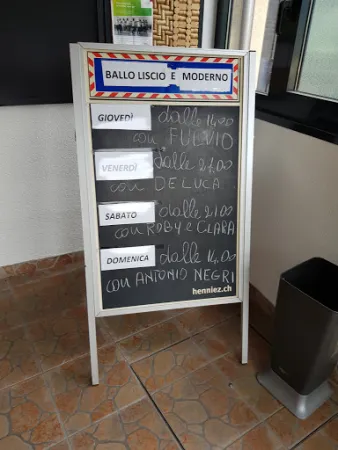 BALLO LISCIO E MODERNO
GIOVEDÌ dalle 14.00
con FULVIO
VENERDÌ dalle 21.00
con DE LUCA
SABATO dalle 21.00
con ROBY e CLARA
DOMENICA dalle 14.00
con ANTONIO NEGRI
henniez.ch